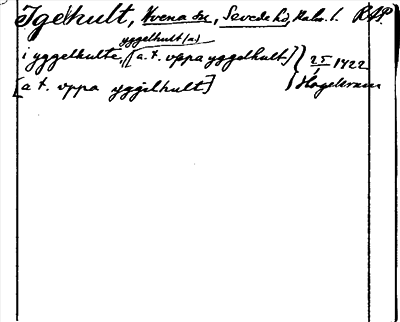 Igelhult, Kvena sn, Sevede hd, Kalm. l. RAP.
yggelhult(a)
i yggelhulte, [a.t. vppa yggelhult] 25/1 1422
[a t. vppa yggilhult]